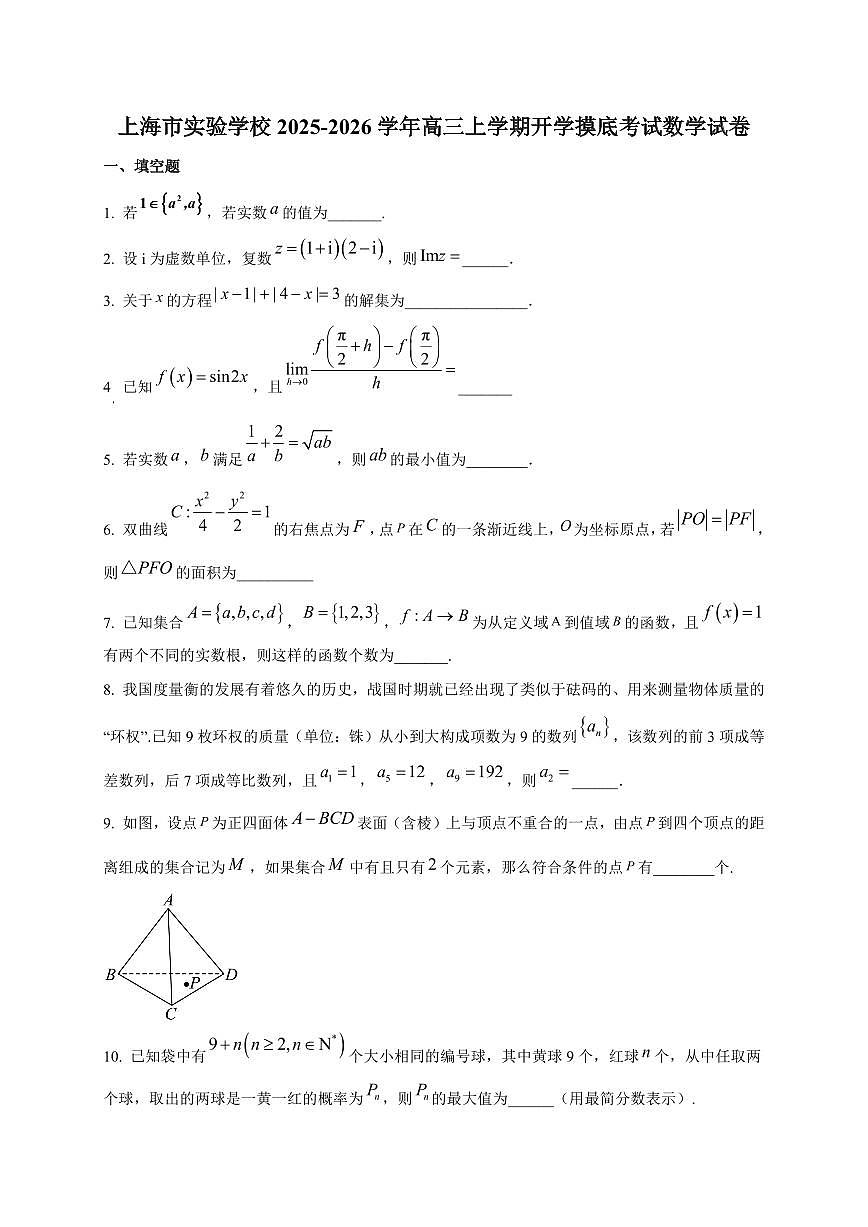 上海市实验学校 2025-2026 学年高三上学期开学摸底考试数学试卷
一、填空题
1. 若 1∈{a²,a}，若实数 a 的值为_______.
2. 设 i 为虚数单位，复数 z=(1+i)(2−i)，则 Imz =______.
3. 关于 x 的方程 |x−1|+|4−x|=3 的解集为________________.
4. 已知 f(x)=sin2x，且 lim_{h→0} (f(π/2+h)−f(π/2))/h =_______
5. 若实数 a，b 满足 1/a+2/b=√ab，则 ab 的最小值为________.
6. 双曲线 C:x²/4−y²/2=1 的右焦点为 F,点 P 在 C 的一条渐近线上,O 为坐标原点,若 |PO|=|PF|,
则△PFO 的面积为__________
7. 已知集合 A={a,b,c,d}，B={1,2,3}，f:A→B 为从定义域 A 到值域 B 的函数，且 f(x)=1
有两个不同的实数根，则这样的函数个数为_______.
8. 我国度量衡的发展有着悠久的历史，战国时期就已经出现了类似于砝码的、用来测量物体质量的
“环权”.已知 9 枚环权的质量（单位：铢）从小到大构成项数为 9 的数列{aₙ}，该数列的前 3 项成等
差数列，后 7 项成等比数列，且 a₁=1，a₅=12，a₉=192，则 a₂=______.
9. 如图，设点 P 为正四面体 A−BCD 表面（含棱）上与顶点不重合的一点，由点 P 到四个顶点的距
离组成的集合记为 M，如果集合 M 中有且只有 2 个元素，那么符合条件的点 P 有________个.
A
B
P
D
C
10. 已知袋中有 9+n(n≥2,n∈N*) 个大小相同的编号球，其中黄球 9 个，红球 n 个，从中任取两
个球，取出的两球是一黄一红的概率为 Pₙ，则 Pₙ 的最大值为______（用最简分数表示）.